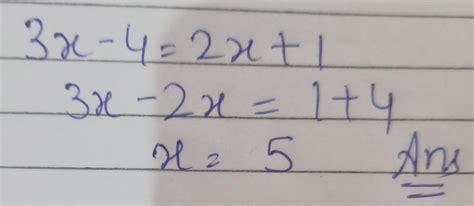 3x - 4 = 2x + 1
3x - 2x = 1 + 4
x = 5 Ans